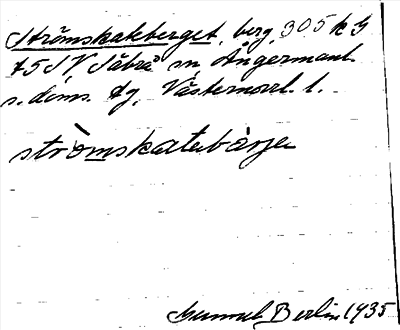 Strömskateberget, berg, 305 k G
45 SV, Säbrå sn Ångermanl.
s. doms. tg, Västernorrl. l.
strömskatebärje
Gunnel Berlin 1935